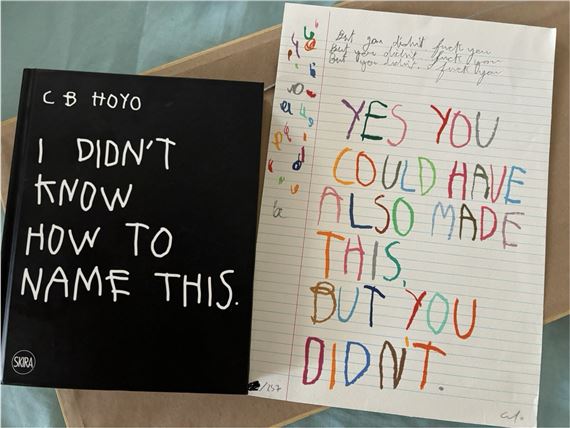 C B HOYO
I DIDN'T
KNOW
HOW TO
NAME THIS.
SKIRA
But you didn't fuck you
But you didn't fuck you
But you didn't fuck you
YES YOU
COULD HAVE
ALSO MADE
THIS.
BUT YOU
DIDN'T.
/157